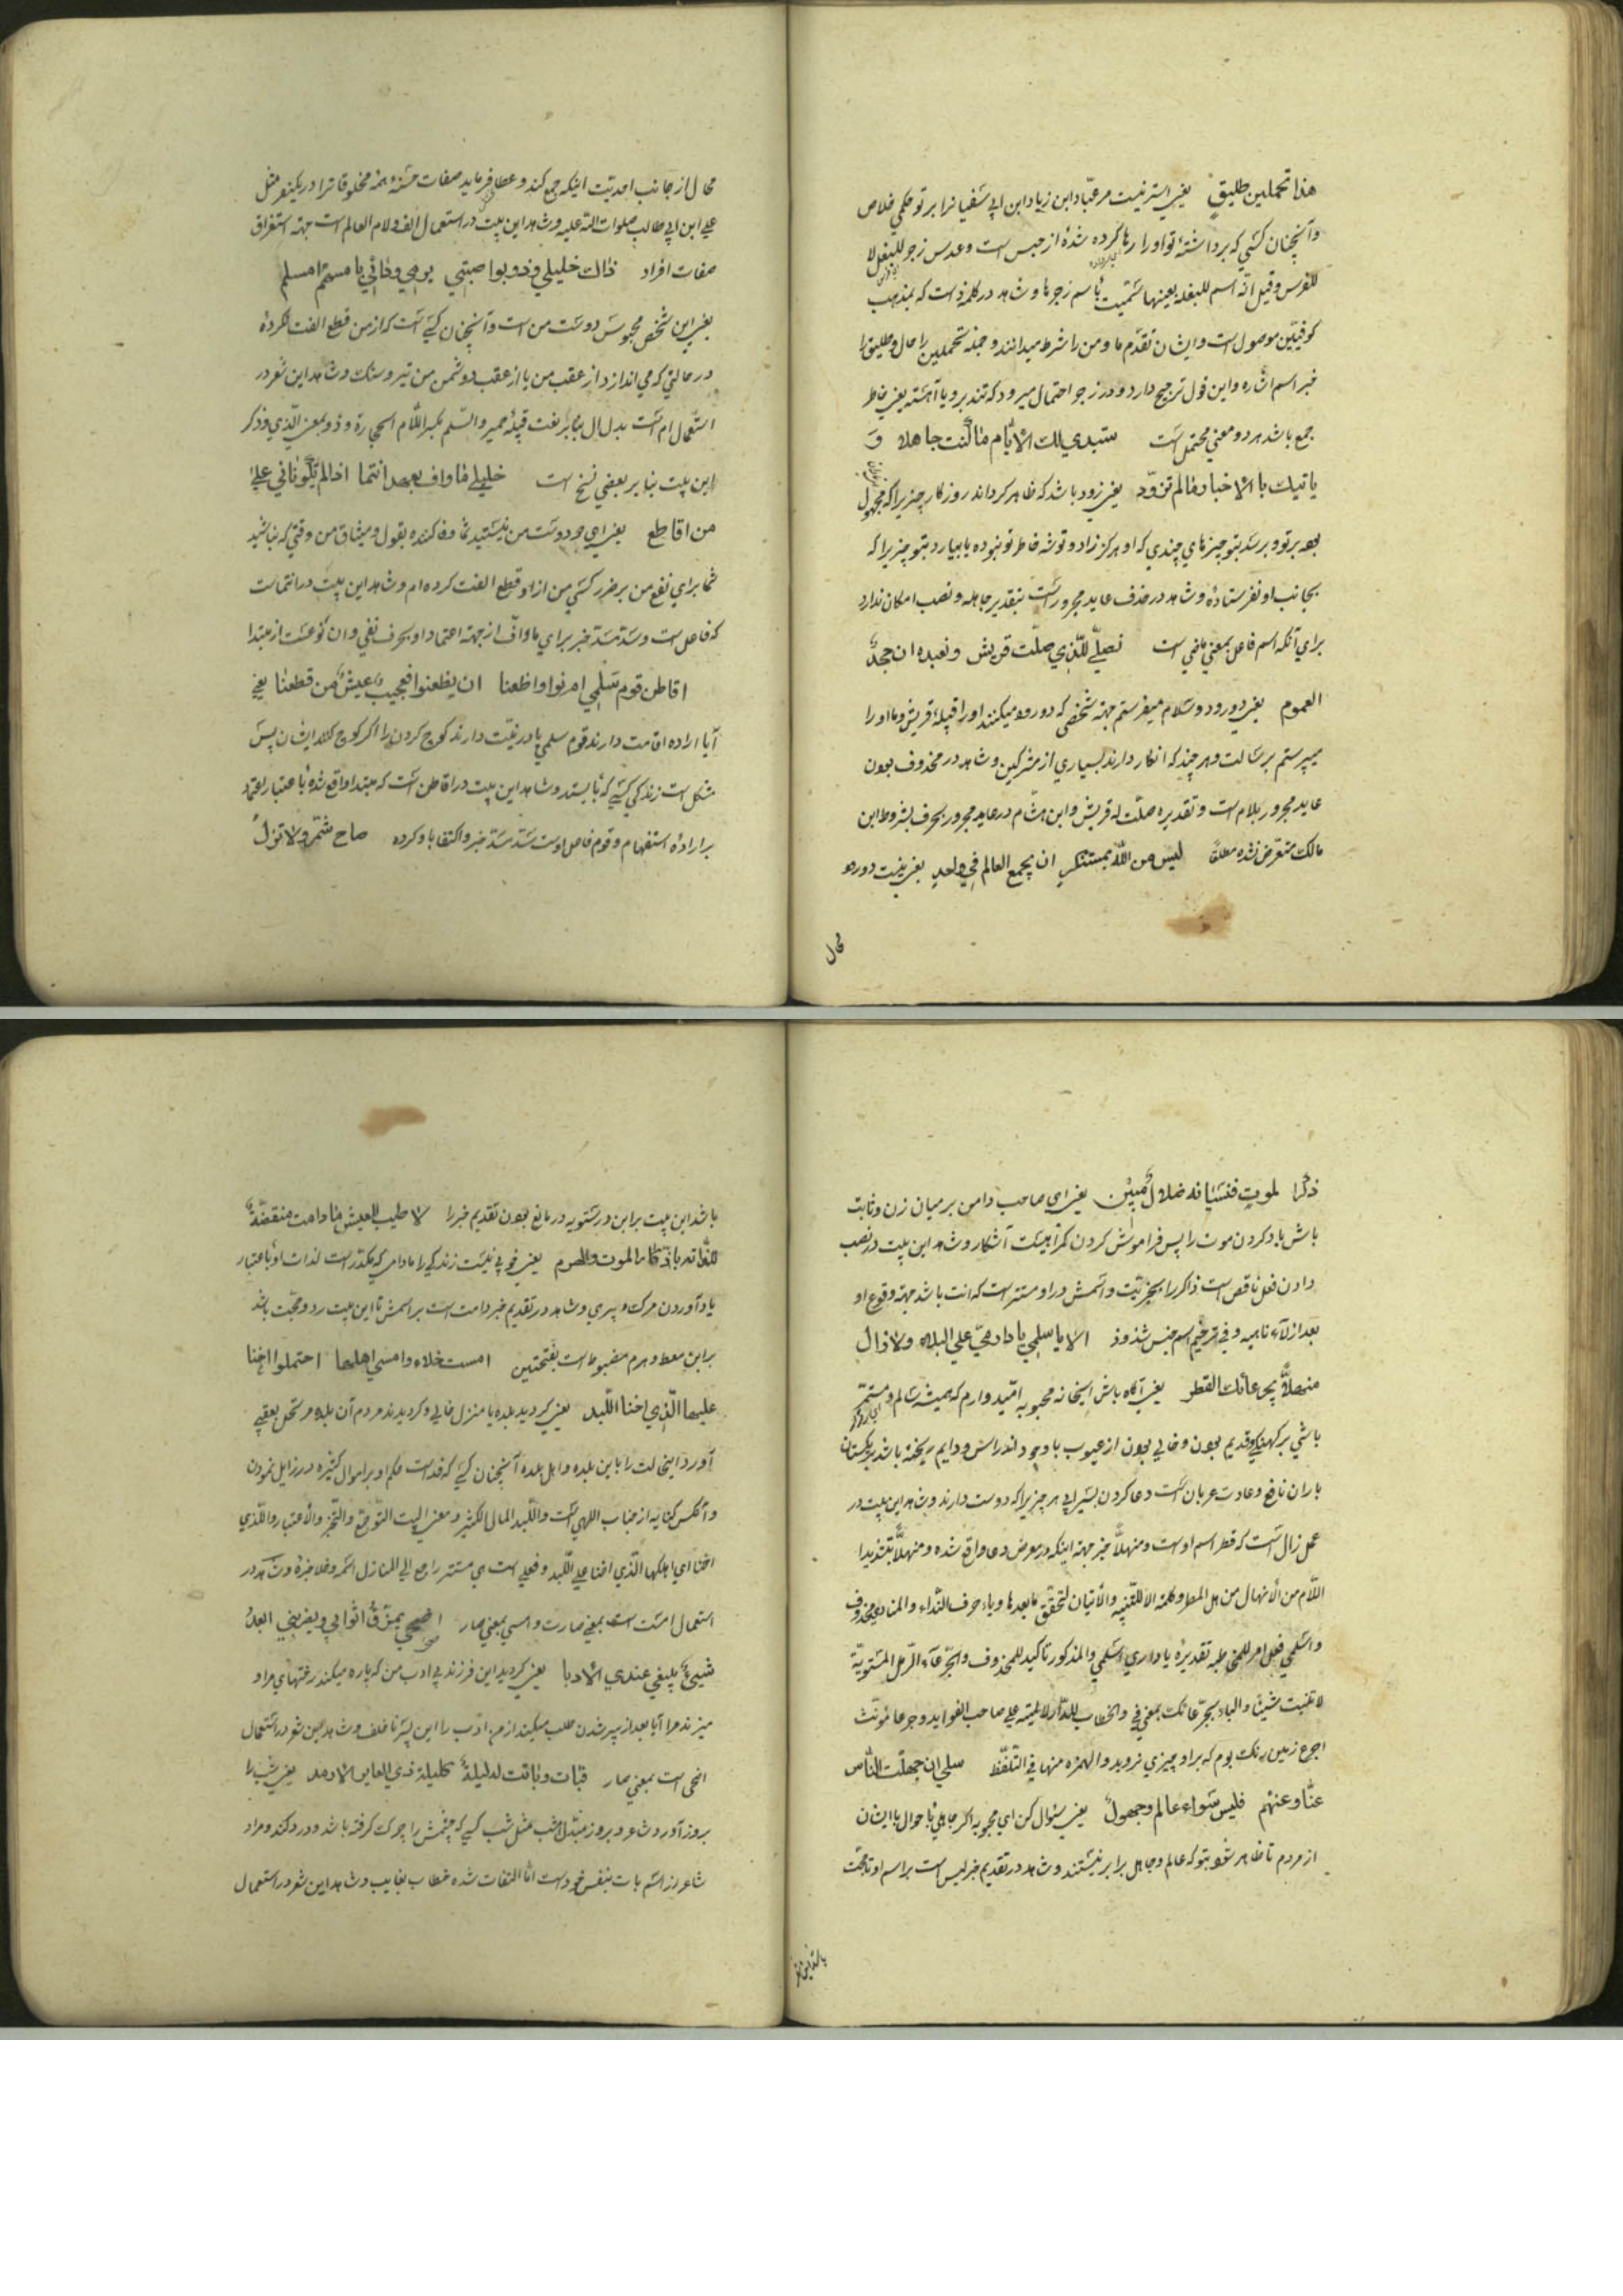 هذا تحملین طلیق یعنی استر نیست مر عبّاد ابن زیاد ابن ابی سفیانرا بر تو حکمی خلاص
و آنچنان کسی که برداشتهٔ تو او را رها کرده شده از حبس است و عدس زجر للبغل لا
للفرس و قیل انّه اسم للبغله بعینها سمّیت باسم زجرها و شاهد در کلمه ذا است که بمذهب
کوفیّین موصول است و ایشان تقدّم ما و من را شرط میدانند و جمله تحملین را حال و طلیق را
خبر اسم اشاره و این قول ترجیح دارد و در زجر احتمال میرود که تند برو یا آهسته یعنی خاطر
جمع باش هر دو معنی محتمل است ستبدی لك الایّام ما کنت جاهلا و
یاتیك بالاخبار من لم تزوّد یعنی زود باشد که ظاهر کرداند روزکار چیزیرا که مجهول
بوده بر تو و برسد بتو چیزهای چندی که او هرکز زاد و توشه خاطر تو نبوده یا بیارد بتو چیزیرا که
بجانب او نفرستادهٔ و شاهد در حذف عاید مجرور است بتقدیر جاهله و نصب امکان ندارد
برای آنکه اسم فاعل بمعنی ماضی است نصلّی للّذی صلّت قریش و نعبده ان جحد
العموم یعنی درود و سلام میفرستم جهة شخصی که درود میکنند او را قبیلهٔ قریش و ما او را
میپرستم برسالت و هر چند که انکار دارند بسیاری از مشرکین و شاهد در محذوف بودن
عاید مجرور بلام است و تقدیره صلّت له قریش و ابن هشام در عاید مجرور بحرف بشروط ابن
مالك متعرض نشده مطلقا لیس من الله بمستنکر ان یجمع العالم فی واحد یعنی نیست دور و
محال
محال از جانب احدیّت اینکه جمع کند و عطا فرماید صفات حسنهٔ همه مخلوقاترا در یکنفر مثل
علی ابن ابی طالب صلوات الله علیه و شاهد این بیت در استعمال الف و لام العالم است جهة استغراق
صفات افراد ذاك خلیلی و ذو یواصلنی یرمی ورائی بامسهم امسلم
یعنی این شخص محبوس دوست من است و آنچنان کسی است که از من قطع الفت نکرده
در حالتی که می اندازد از عقب من یا از عقب دوشمن من تیر و سنك و شاهد این شعر در
استعمال ام است بدل ال بنا بر لغت قبیلهٔ حمیر و السّلم بکسر اللّام الحجارة و ذو بمعنی الّذی و ذکر
این بیت بنا بر بعضی نسخ است خلیلی ما واف بعهدی انتما اذا لم تکونا لی علی
من اقاطع یعنی ای دو دوست من نیستید شما وفا کننده بقول و میثاق من وقتی که نباشید
شما برای نفع من بر ضرر کسی من از او قطع الفت کرده ام و شاهد این بیت در انتما است
که فاعل است و سدّ مسدّ خبر برای ما واف از جهة اعتماد او بحرف نفی و ان نوعست از مبتدا
اقاطن قوم سلمی ام نووا ظعنا ان یظعنوا فعجیب عیش من قطعنا یعنی
آیا اراده اقامت دارند قوم سلمی یا در نیّت دارند کوچ کردن را اکر کوچ کنند ایشان پس
مشکل است زندکی کسی که بایستد و شاهد این بیت در اقاطن است که مبتدا واقع شده باعتبار اعتماد
بر اراده استفهام و قوم فاعل اوست سدّ مسدّ خبر و اکتفا باو کرده صاح شمّر و لا تزل
ذاکر الموت فنسیانه ضلال مبین یعنی ای صاحب دامن بر میان زن و ثابت
باش یاد کردن موت را پس فراموش کردن کمراهیست آشکار و شاهد این بیت در نصب
دادن فعل ناقص است ذاکر را بخبریّت و اسمش در او مستتر است که انت باشد جهة وقوع او
بعد از لاء ناهیه و فی ترخیم اسم جنس شذوذ الا یا اسلمی یا دار میّ علی البلی و لا زال
منهلّا بجرعائك القطر یعنی آکاه باش ایخانه محبوبه امّیدوارم که همیشه سالم و مستمر
باشی بر کهنکی و قدیم بودن و خالی بودن از عیوب با وجود اندراس و دایم ریخته باشد بریکستان
باران نافع و عادت عربان است دعا کردن بسیرابی هر چیزیرا که دوست دارند و شاهد این بیت در
عمل زال است که قطر اسم اوست و منهلّا خبر جهة اینکه در معرض دعا واقع شده و منهلّا بتشدید
اللّام من الانهلال من هل المطر و کلمة الا للتّنبیه و الاتیان لتحقّق ما بعدها و یاء حرف النّداء و المنادی محذوف
و اسلمی فعل امر للمخاطبه تقدیره یا دار می اسلمی و المذکور تاکید للمحذوف و الجرعاء الرّمل المستویّة
لا تنبت شیئا و الباء بجرعائك بمعنی فی و الخطاب للدّار لا لمیّه علی صاحب الفواید و جرعا مؤنّث
اجرع زمین ریك بوم که بر او چیزی نروید و الهمزه منها فی التّلفّظ سلی ان جهلت النّاس
عنّا و عنهم فلیس سواء عالم و جهول یعنی سئوال کن ای محبوبه اکر جاهلی باحوال ما ایشان
از مردم تا ظاهر شود بتو که عالم و جاهل برابر نیستند و شاهد در تقدیم خبر لیس است بر اسم او تا حجّت
باشد این بیت
باشد این بیت بر ابن درستویه در مانع بودن تقدیم خبر را لا طیب للعیش ما دامت منغّصة
لذّاته باذّکار الموت و الهرم یعنی خوبی نیست زندکی را مادامی که مکدّر است لذات او باعتبار
یاد آوردن مرك و پیری و شاهد در تقدیم خبر دامت است بر اسمش تا این بیت رد و حجّت باشد
بر ابن معط و هرم مضبوط است بفتحتین امست خلاء و امسی اهلها احتملوا اخنا
علیها الّذی اخنا علی لبد یعنی کردید بلده یا منزل خالی و کردیدند مردم آن بلده مرتحل بعقبی
آورد اینحالت را باین بلده و اهل بلده آنچنان کسی که فدا است حکم او بر اموال کثیره در زایل نمودن
و آنکس کنایه از جناب اللهی است و اللّبد المال الکثیر و معنی البیت التّوجّع و التّحیّر و الاعتبار و الّذی
اخنا ای اهلکها الّذی اخنا علی اللّبد و فعلی است می مستتر راجع الی المنازل اسمه و خلا خبره و شاهد در
استعمال امست است بمعنی صارت و امسی بمعنی صار اضحی یمزّق اثوابی و یضربنی ابعد
شیبی یبغی عندی الادبا یعنی کردید این فرزند بی ادب من که پاره میکند رختهای مرا و
میزند مرا آیا بعد از پیر شدن طلب میکند از من ادب را این پسر ناخلف و شاهد این شعر در استعمال
اضحی است بمعنی صار و بات و باتت له لیلة کلیلة ذی العایر الارمد یعنی شب را
بروز آورد شاعر و بروز مبتدل شب مثل شب کسی که چشمش را چرك کرفته باشد و درد کند و مراد
شاعر از اسم بات نفس خود است امّا التفات شده خطاب بغایب و شاهد این شعر در استعمال